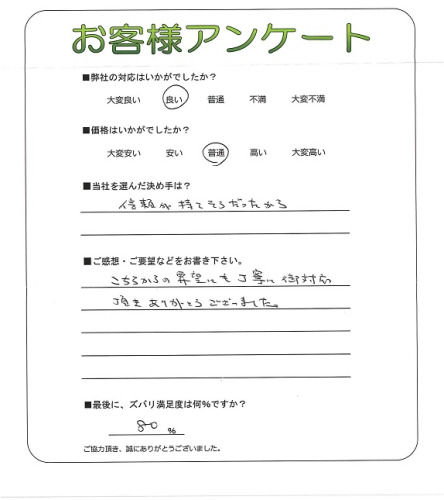 お客様アンケート
■弊社の対応はいかがでしたか？
大変良い 良い 普通 不満 大変不満
■価格はいかがでしたか？
大変安い 安い 普通 高い 大変高い
■当社を選んだ決め手は？
信頼が持てそうだったから
■ご感想・ご要望などをお書き下さい。
こちらからの希望にも丁寧に御対応
頂きありがとうございました。
■最後に、ズバリ満足度は何％ですか？
80 ％
ご協力頂き、誠にありがとうございました。